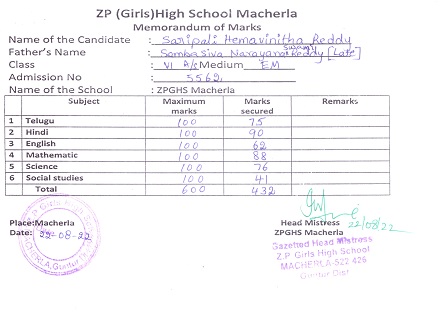 ZP (Girls)High School Macherla
Memorandum of Marks
Name of the Candidate : Saripali Hemavinitha Reddy
Father's Name : Samba Siva Narayana Swamy Reddy [Late]
Class : VI A/s Medium EM
Admission No : 5562
Name of the School : ZPGHS Macherla
Subject Maximum marks Marks secured Remarks
1 Telugu 100 75
2 Hindi 100 90
3 English 100 62
4 Mathematic 100 88
5 Science 100 76
6 Social studies 100 41
Total 600 432
Place:Macherla
Date: 22-08-22
Z.P. Girls High School
MACHERLA, Guntur Dt.
22/08/22
Head Mistress
ZPGHS Macherla
Gazetted Head Mistress
Z.P Girls High School
MACHERLA-522 426
Guntur Dist